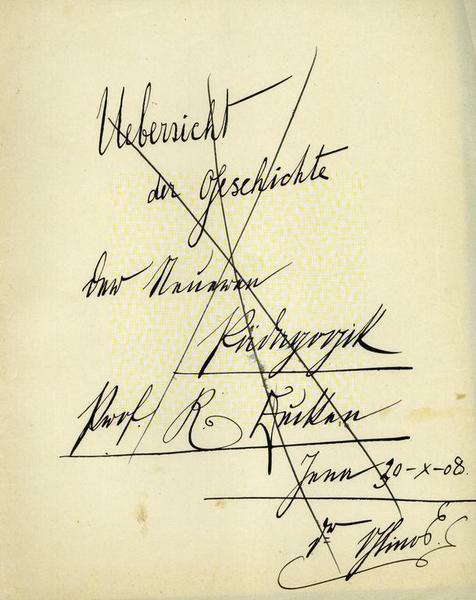 Uebersicht
der Geschichte
der Neueren
Pädagogik
Prof R Eucken
Jena 30-X-08.
Dr